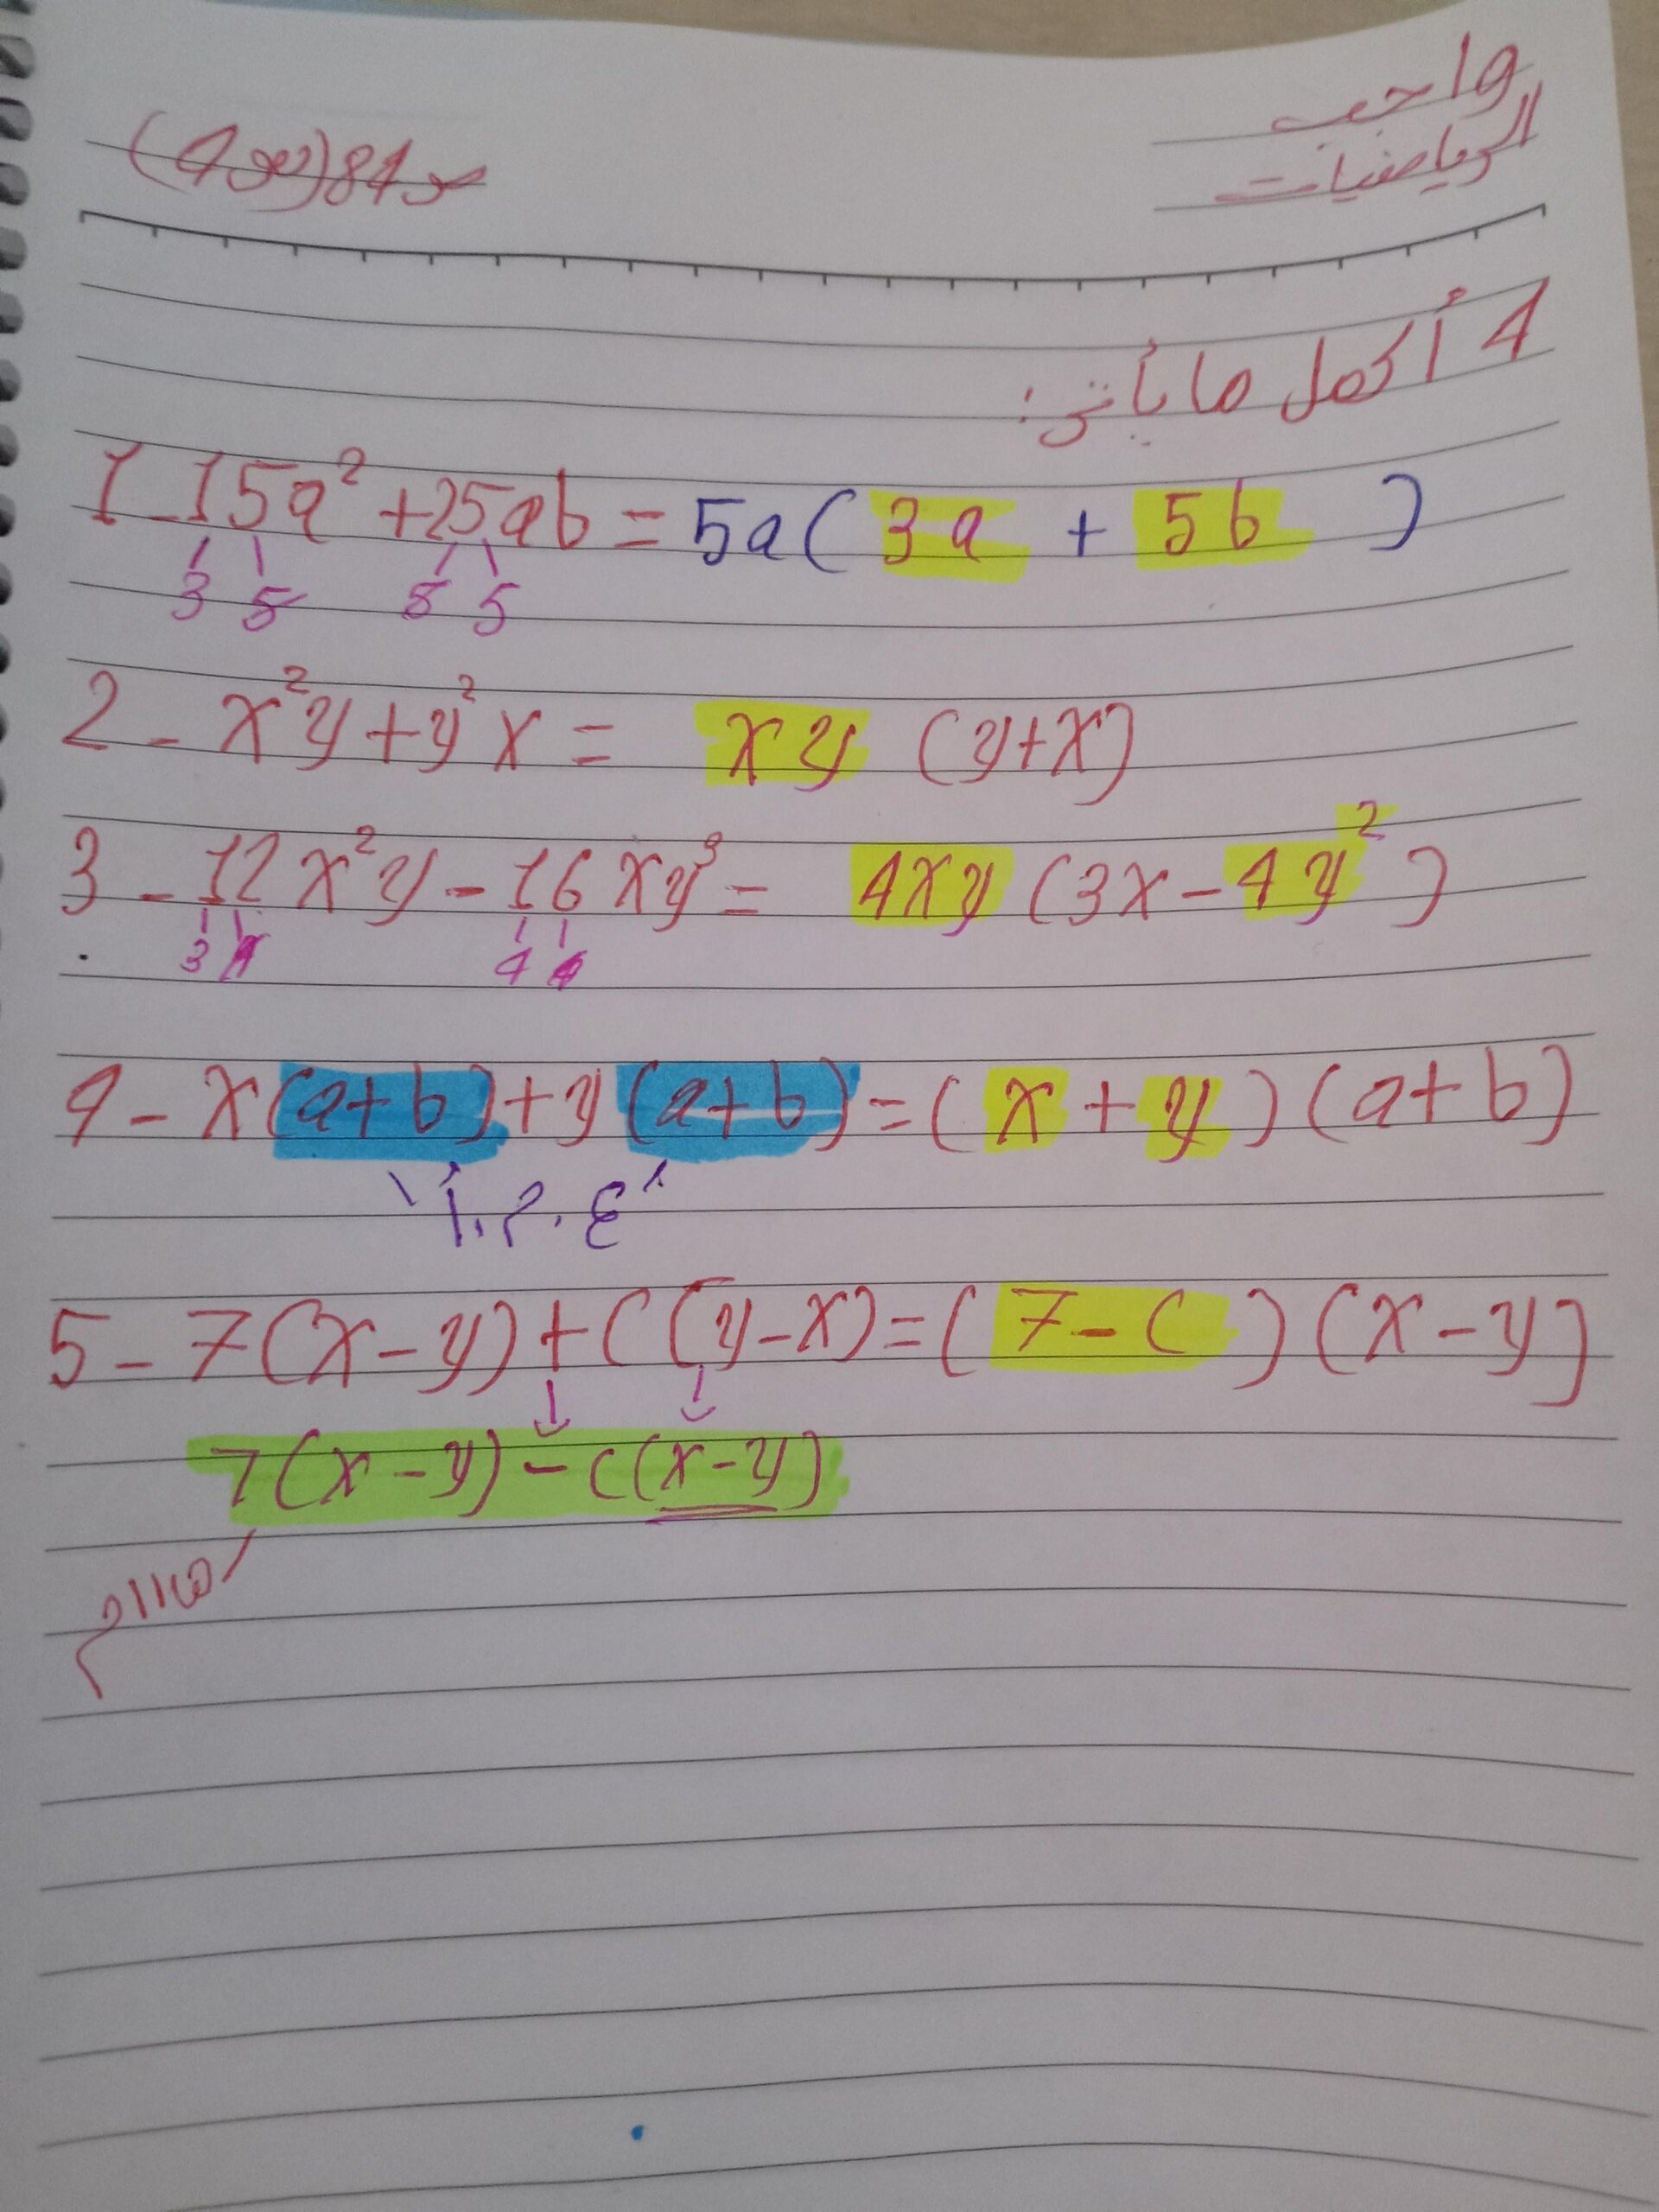 واجب
الرياضيات
صـ84(س4)
4 أكمل ما يأتي:
1 - 15a² + 25ab = 5a( 3a + 5b )
3 5 5 5
2 - x²y + y²x = xy (y+x)
3 - 12x²y - 16xy³ = 4xy (3x - 4y²)
3 4 4 4
4 - x(a+b)+y(a+b) = (x + y)(a+b)
ع.م.أ
5 - 7(x-y)+c(y-x) = (7-c)(x-y)
7(x-y)-c(x-y)